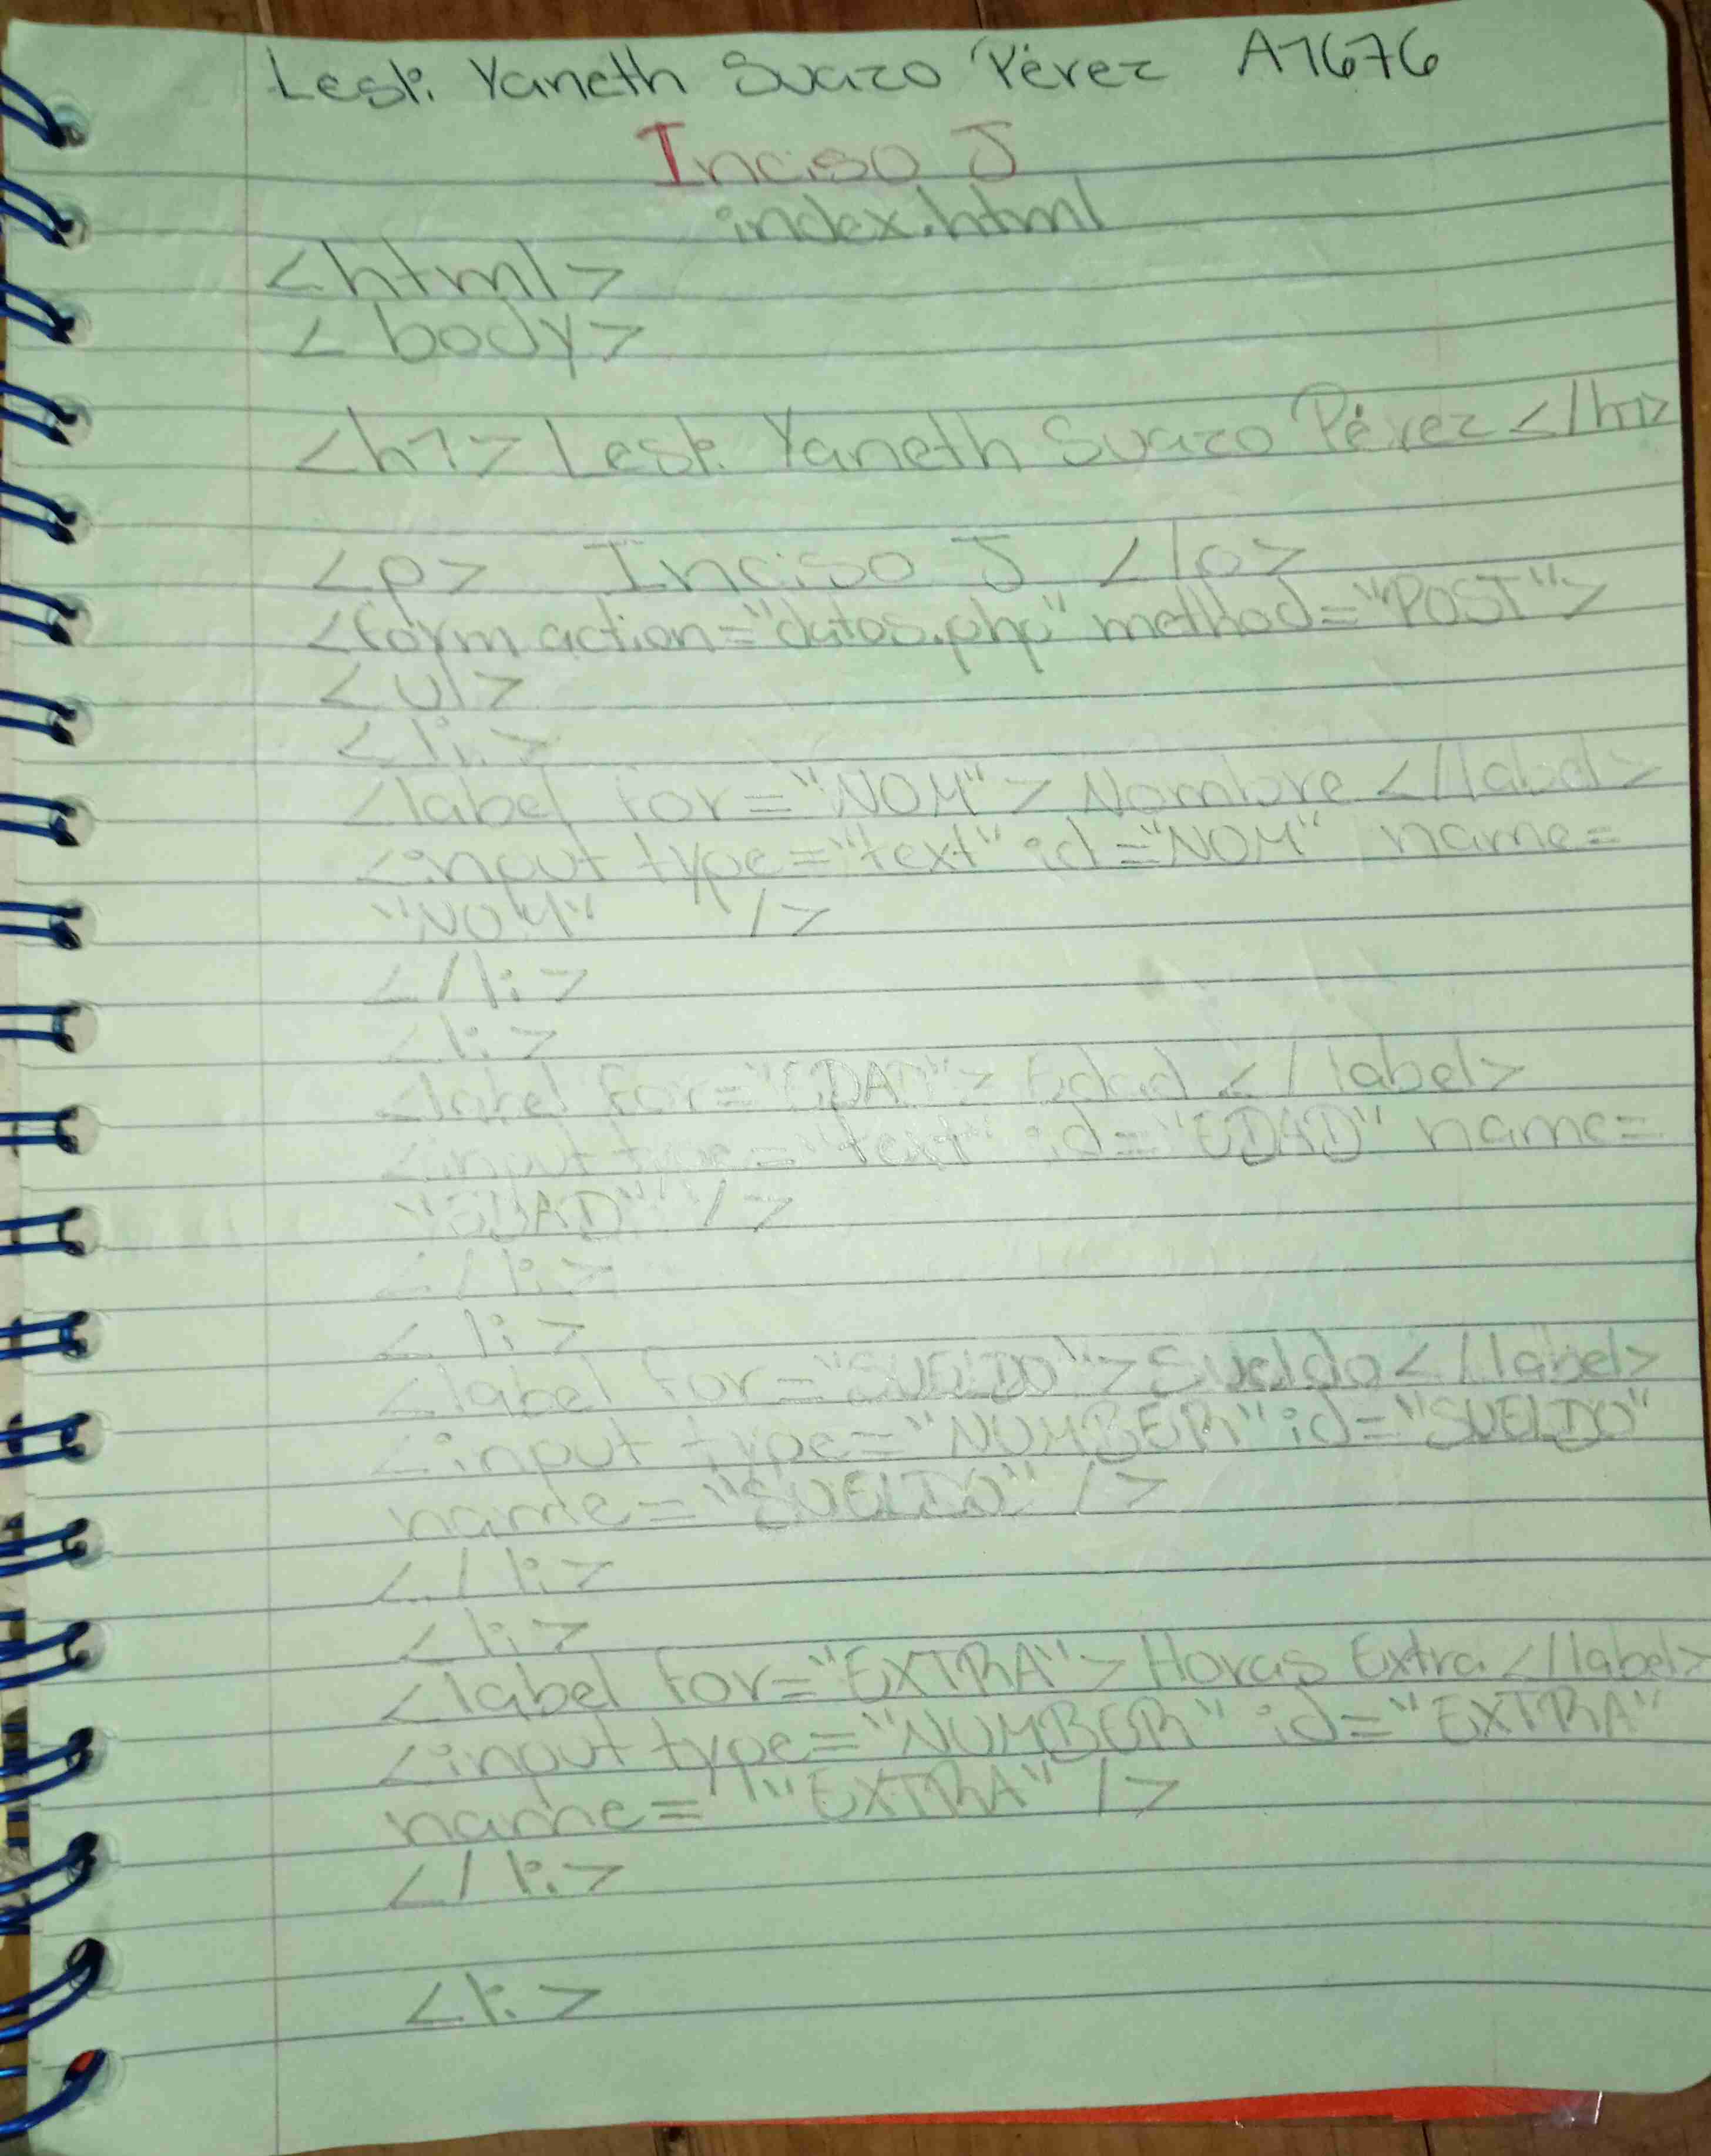 Lesli Yaneth Suazo Pérez A1676
Inciso J
index.html
<html>
<body>
<h1> Lesli Yaneth Suazo Pérez </h1>
<p> Inciso J </p>
<form action="datos.php" method="POST">
<ul>
<li>
<label for="NOM"> Nombre </label>
<input type="text" id="NOM" name=
"NOM" />
</li>
<li>
<label for="EDAD"> Edad </label>
<input type="text" id="EDAD" name=
"EDAD" />
</li>
<li>
<label for="SUELDO"> Sueldo </label>
<input type="NUMBER" id="SUELDO"
name="SUELDO" />
</li>
<li>
<label for="EXTRA"> Horas Extra </label>
<input type="NUMBER" id="EXTRA"
name="EXTRA" />
</li>
<li>